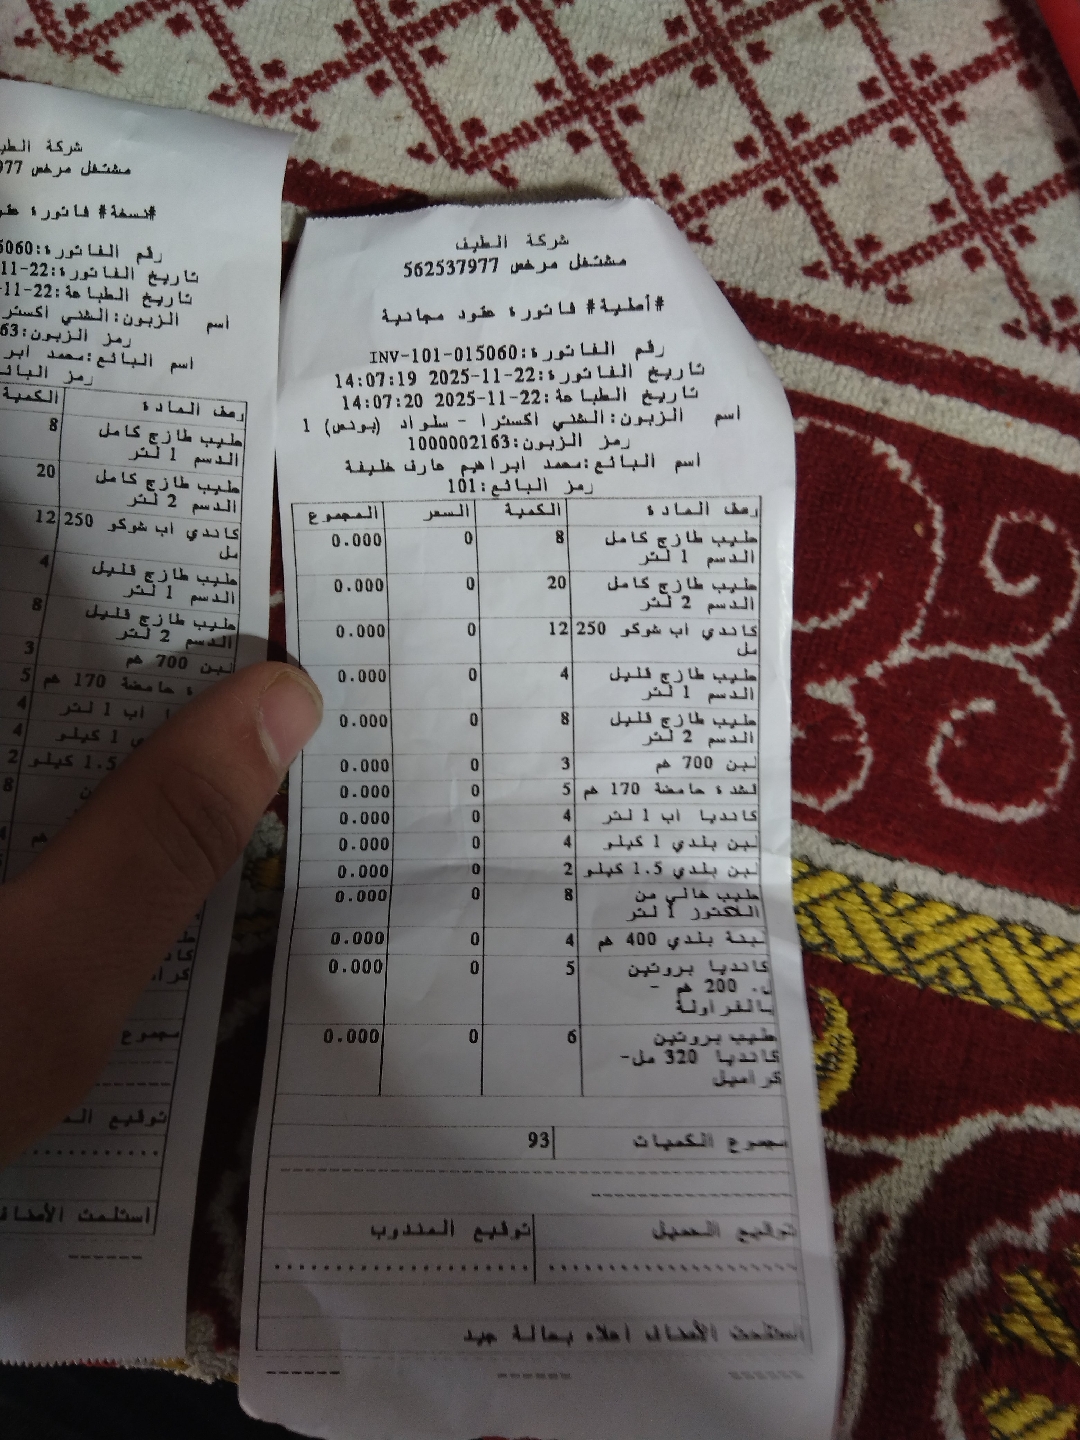 شركة الطيف
مشتغل مرخص 562537977
#أصلية# فاتورة عقود مجانية
رقم الفاتورة:INV-101-015060
تاريخ الفاتورة:22-11-2025 14:07:19
تاريخ الطباعة:22-11-2025 14:07:20
اسم الزبون:الشني اكسترا - سلواد (بونص) 1
رمز الزبون:1000002163
اسم البائع:محمد ابراهيم عارف خليفة
رمز البائع:101
وصف المادة الكمية السعر المجموع
حليب طازج كامل 8 0 0.000
الدسم 1 لتر
حليب طازج كامل 20 0 0.000
الدسم 2 لتر
كاندي اب شوكو 250 12 0 0.000
مل
حليب طازج قليل 4 0 0.000
الدسم 1 لتر
حليب طازج قليل 8 0 0.000
الدسم 2 لتر
لبن 700 غم 3 0 0.000
قشدة حامضة 170 غم 5 0 0.000
كانديا اب 1 لتر 4 0 0.000
لبن بلدي 1 كيلو 4 0 0.000
لبن بلدي 1.5 كيلو 2 0 0.000
حليب خالي من 8 0 0.000
اللاكتوز 1 لتر
لبنة بلدي 400 غم 4 0 0.000
كانديا بروتين 5 0 0.000
ل. 200 غم -
بالفراولة
حليب بروتين 6 0 0.000
كانديا 320 مل-
كراميل
مجموع الكميات 93
توقيع العميل توقيع المندوب
استلمت الأصناف اعلاه بحالة جيد
شركة
مشتغل مرخص
#نسخة# فاتورة
رقم الفاتورة:
تاريخ الفاتورة:22-11-
تاريخ الطباعة:22-11-
اسم الزبون:الشني اكسترا
رمز الزبون:
اسم البائع:محمد
رمز
وصف المادة الكمية
حليب طازج كامل 8
الدسم 1 لتر
حليب طازج كامل 20
الدسم 2 لتر
كاندي اب شوكو 250 12
مل
حليب طازج قليل 4
الدسم 1 لتر
حليب طازج قليل 8
الدسم 2 لتر
لبن 700 غم 3
حامضة 170 غم 5
اب 1 لتر 4
1 كيلو 4
1.5 كيلو 2
8
توقيع
استلمت